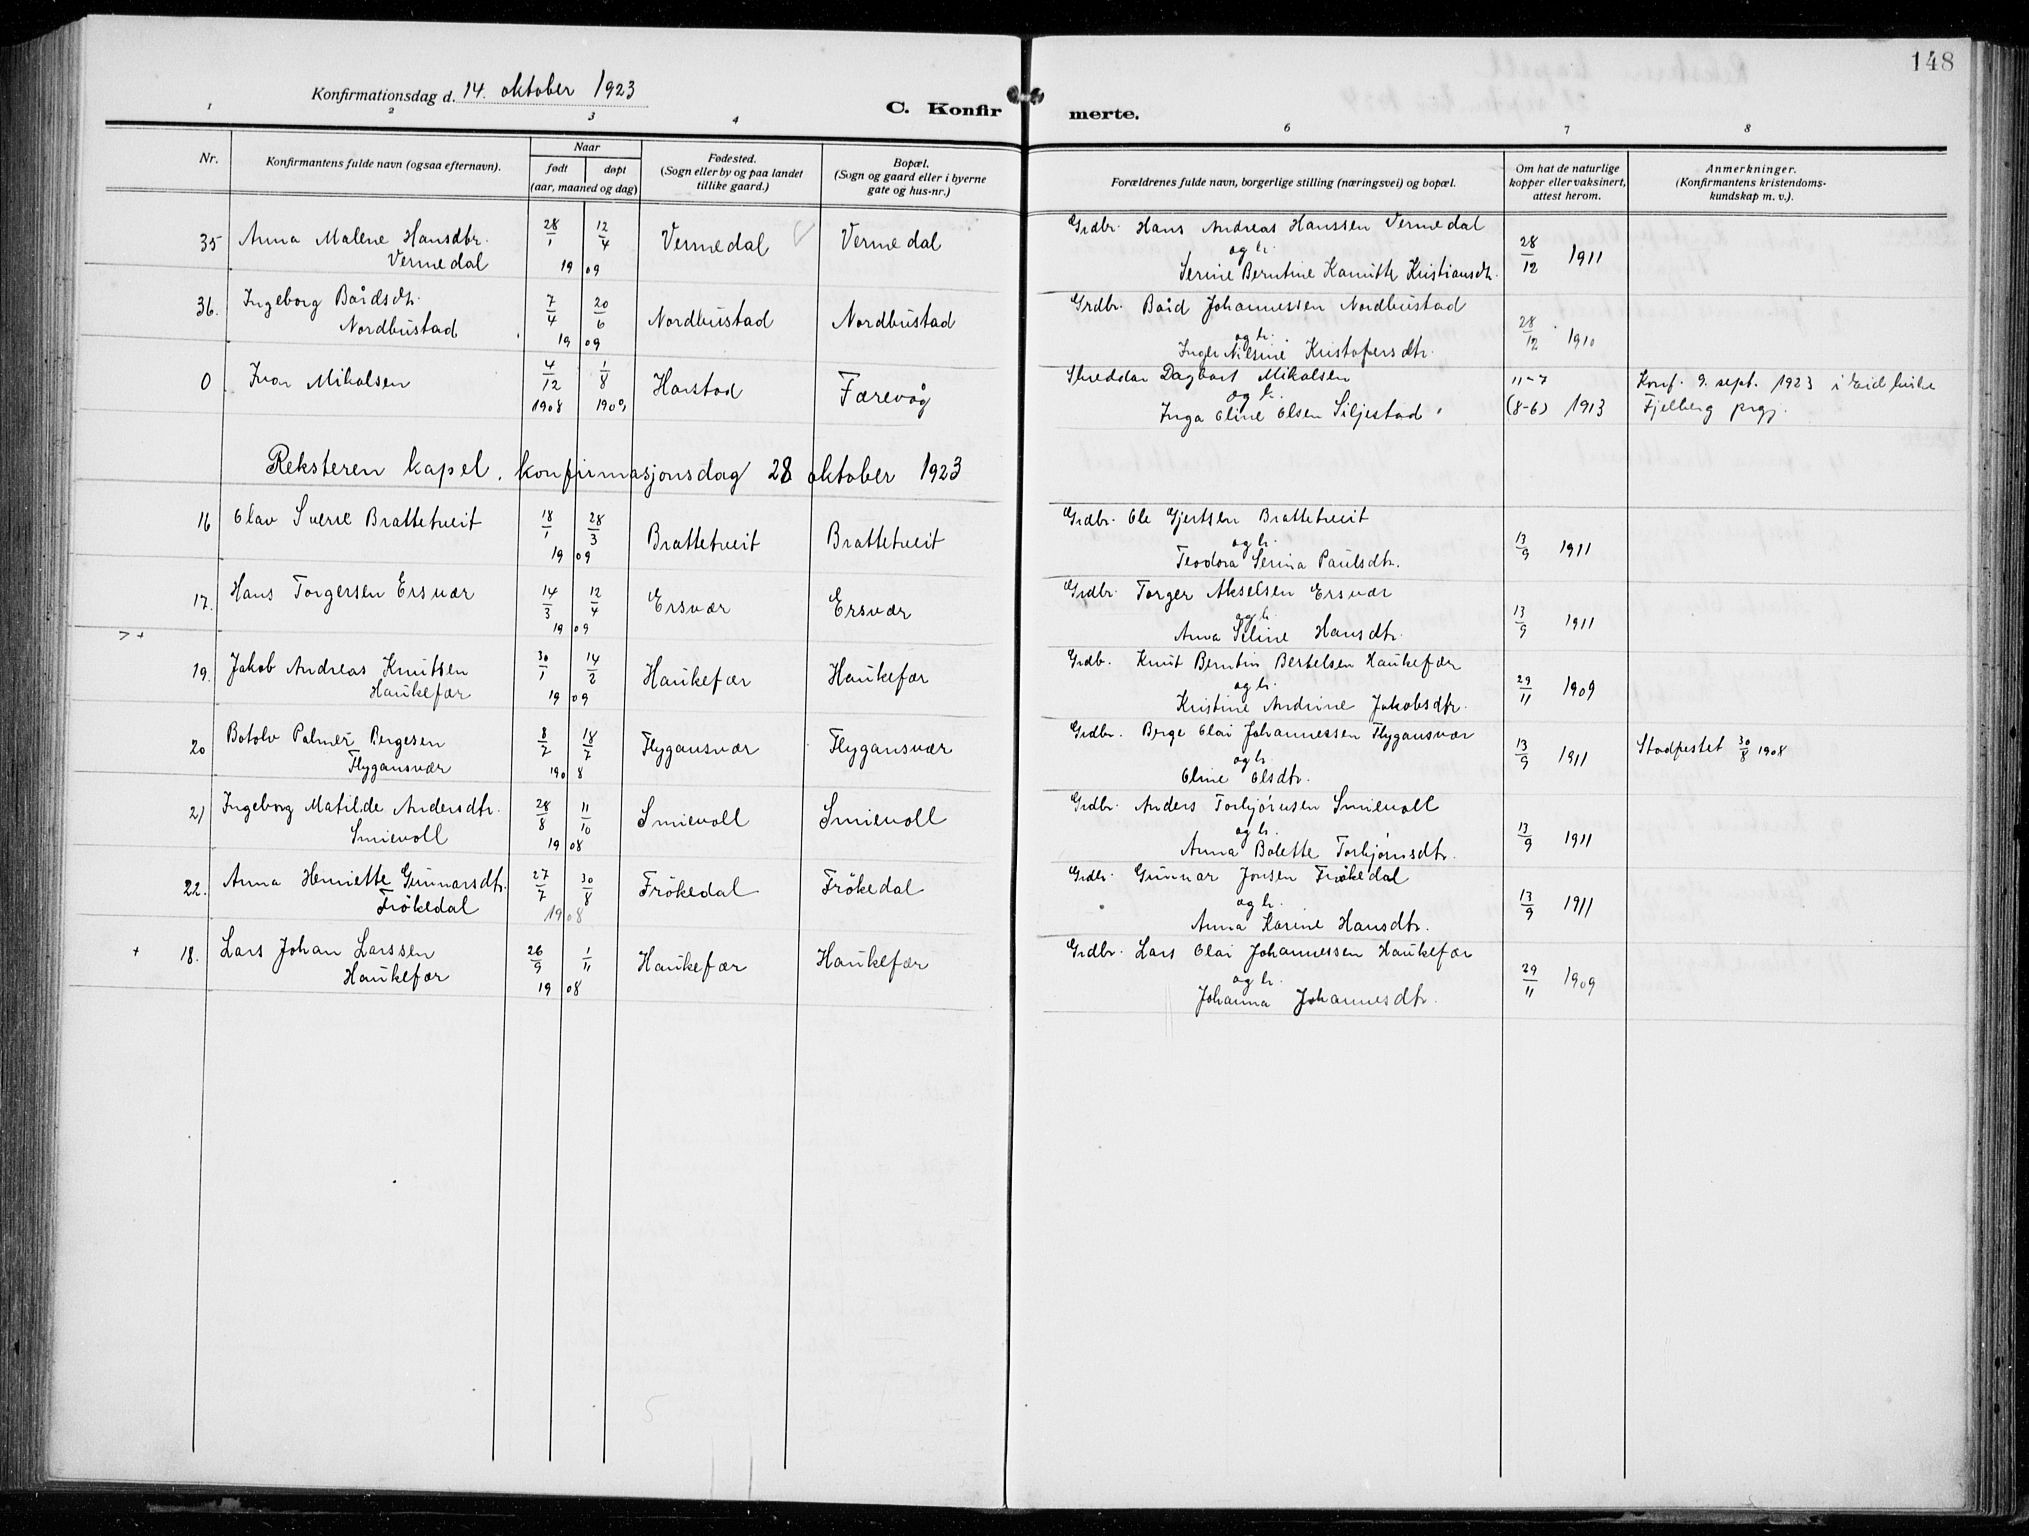 148
Konfirmationsdag d. 14. oktober 1923
C. Konfirmerte.
1 2 3 4 6 7 8
Nr.
Konfirmantens fulde navn (ogsaa efternavn).
Naar
født døpt
(aar, maaned og dag)
Fødested.
(Sogn eller by og paa landet
tillike gaard.)
Bopæl.
(Sogn og gaard eller i byerne
gate og hus-nr.)
Forældrenes fulde navn, borgerlige stilling (næringsvei) og bopæl.
Om hat de naturlige
kopper eller vaksinert,
attest herom.
Anmerkninger.
(Konfirmantens kristendoms-
kundskap m. v.).
35 Anna Malene Hansdtr. 28/1 12/4 Vermedal Vermedal Grdbr. Hans Andreas Hanssen Vermedal 28/12 1911
Vermedal 19 09 og h. Serine Berntine Kamitte Kristiansdt.
36. Ingeborg Baidsdt. 7/4 20/6 Nordbustad Nordbustad Grdbr. Baid Johannessen Nordbustad 28/12 1910
Nordbustad 19 09 og h. Inger Nilsine Kristofersdtr.
0 Ivar Mikalsen 4/12 1/8 Harstad Færevåg Skreddar Dagbart Mikalsen 11-7 Konf. 9. sept. 1923 i Eid kirke
1908 1909 og h. Inga Oline Olsen Siljestad (8-6) 1913 Fjelberg prgj.
Reksteren kapel. konfirmasjonsdag 28 oktober 1923
16 Olav Sverre Brattetveit 18/1 28/3 Brattetveit Brattetveit Grdbr. Ole Gjertsen Brattetveit 13/9 1911
19 09 og h. Teodora Serina Paulsdtr.
17. Hans Torgersen Ersvær 14/3 12/4 Ersvær Ersvær Grdbr. Torger Akselsen Ersvær 13/9 1911
19 09 og h. Anna Seline Hansdtr.
19. Jakob Andreas Knutsen 30/1 14/2 Haukefær Haukefær Grdb. Knut Berntin Bertelsen Haukefær 29/11 1909
Haukefær 19 09 og h. Kristine Andrine Jakobsdtr.
20 Botolv Palmer Bergesen 8/2 18/7 Flygansvær Flygansvær Grdbr. Berge Olai Johannessen Flygansvær 13/9 1911 Stadfestet 30/8 1908
Flygansvær 190 8 og h. Oline Olsdtr.
21 Ingeborg Matilde Andersdtr. 28/8 11/10 Smievoll Smievoll Grdbr. Anders Torbjørnsen Smievoll 13/9 1911
Smievoll 19 08 og h. Anna Bolette Torbjørnsdtr.
22. Anna Henriette Gunnarsdtr. 27/7 30/8 Frökedal Frökedal Grdbr. Gunnar Jonsen Frökedal 13/9 1911
Frökedal 19 08 og h. Anna Karine Hansdtr.
+ 18. Lars Johan Larssen 26/9 1/11 Haukefær Haukefær Grdbr. Lars Olai Johannessen Haukefær 29/11 1909
Haukefær 19 08 og h. Johanna Johannesdtr.